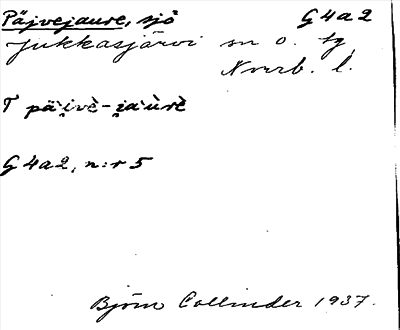 Päjvejaure, sjö G4a2
Jukkasjärvi sn o. tg
Norrb. l.
T pä̀i̯vè-i̯aùrè
G4a2, n:r 5
Björn Collinder 1937.